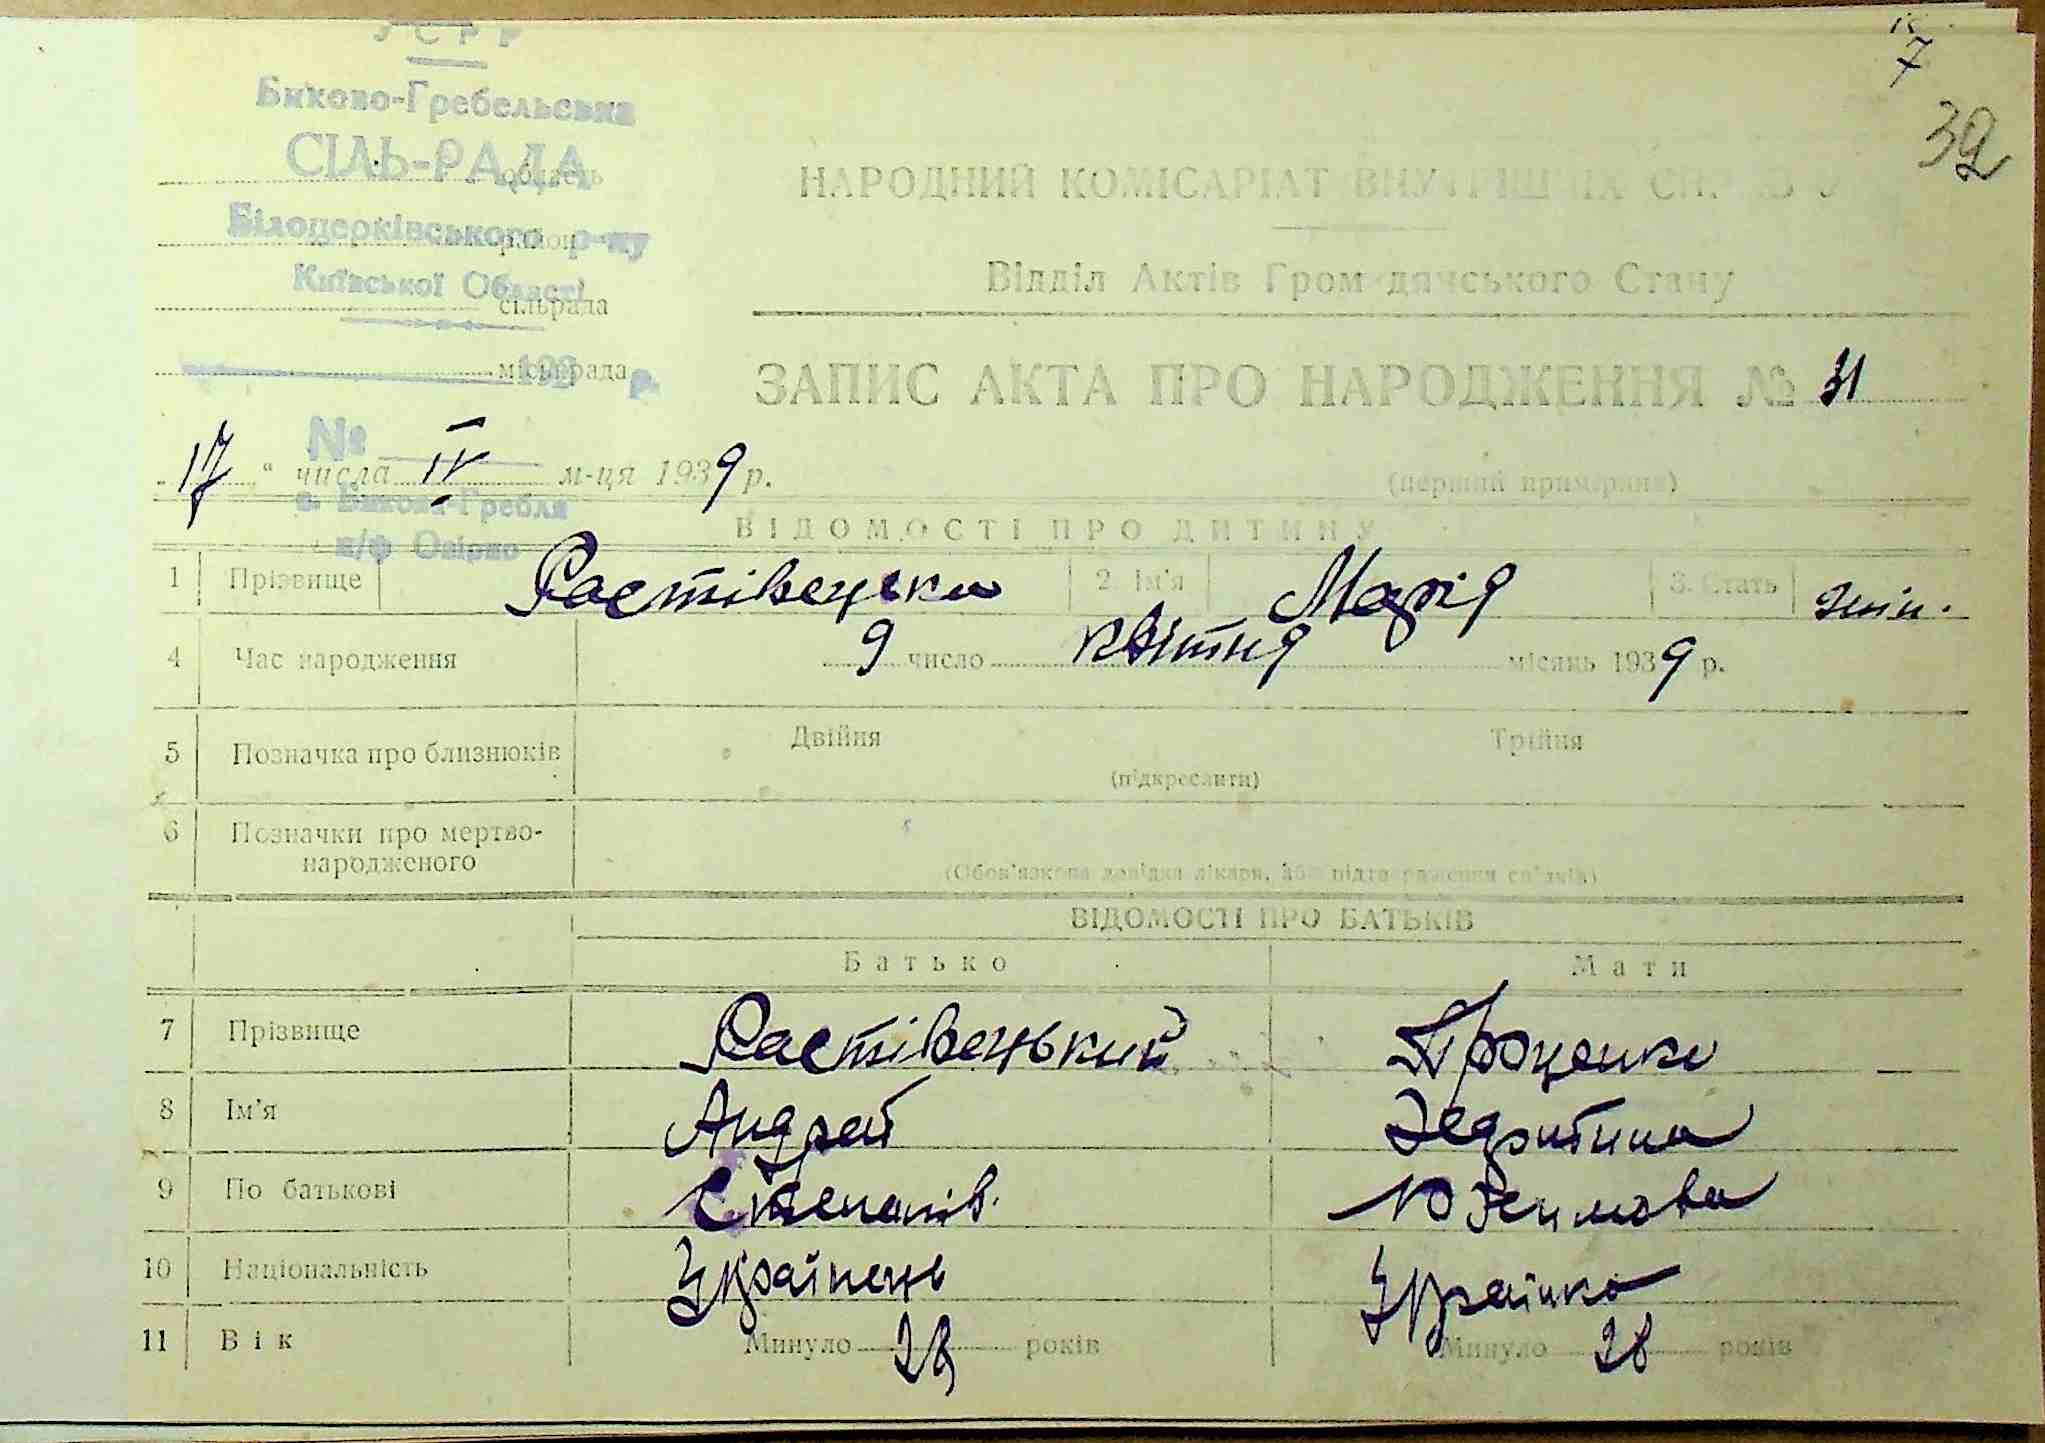 УСРР
7
Биково-Гребельська
32
СІЛЬ-РАДА
область
НАРОДНИЙ КОМІСАРІАТ ВНУТРІШНІХ СПРАВ У
Білоцерківського р-ну
район
Київської Області
Відділ Актів Громадянського Стану
сільрада
міськрада
193 р.
ЗАПИС АКТА ПРО НАРОДЖЕННЯ № 31
№
„17“ числа IV м-ця 1939 р.
(перший примірник)
с. Бикова-Гребля
п/ф Озірно
ВІДОМОСТІ ПРО ДИТИНУ
1 Прізвище Растівецька 2. Ім'я Марія 3. Стать жін.
4 Час народження 9 число квітня місяць 1939 р.
5 Позначка про близнюків Двійня Трійня
(підкреслити)
6 Позначки про мертво-
народженого
(Обов'язкова довідка лікаря, або підтвердження свідків)
ВІДОМОСТІ ПРО БАТЬКІВ
Батько Мати
7 Прізвище Растівецький Проценко
8 Ім'я Андрей
9 По батькові Степанів. Юхимова
10 Національність Українець Українка
11 Вік Минуло 28 років Минуло 28 років